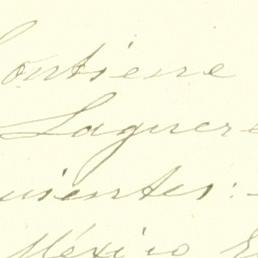 Contiene
Laguere
uientes:
México E